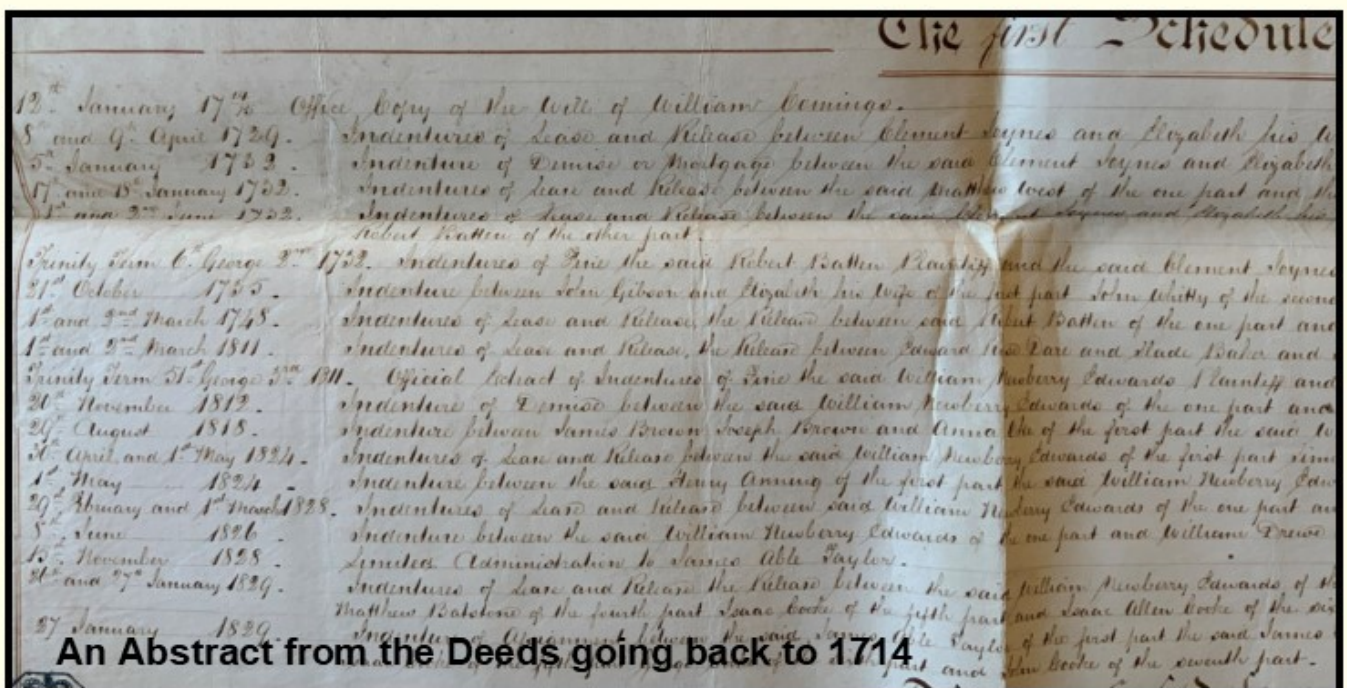 The first Schedule
January 17 Office Copy of the Will of William Comings.
8th and 9th April 1729. Indentures of Lease and Release between Clement Joynes and Elizabeth his
5th January 1732. Indenture of Demise or Mortgage between the said Clement Joynes and Elizabeth
17th and 18th January 1732. Indentures of Lease and Release between the said Matthew West of the one part and the
1st and 2nd June 1732. Indentures of Lease and Release between the said Clement Joynes and Elizabeth his
Robert Batten of the other part.
Trinity Term 6th George 2nd 1732. Indentures of Fine the said Robert Batten Plaintiff and the said Clement Joynes
21st October Indenture between John Gibson and Elizabeth his Wife of the first part John Whitty of the second
1st and 2nd March 1748. Indentures of Lease and Release, the Release between said Robert Batten of the one part and
1st and 2nd March 1811. Indentures of Lease and Release, the Release between Edward Dare and Slade Baker and
Trinity Term 51st George 3rd 1811. Official Extract of Indentures of Fine the said William Newberry Edwards Plaintiff and
November 1812. Indenture of Demise between the said William Newberry Edwards of the one part and
29th August 1818. Indenture between James Brown Joseph Brown and Anna of the first part the said
30th April and 1st May 1824. Indentures of Lease and Release between the said William Newberry Edwards of the first part
1st May 1824. Indenture between the said Henry Anning of the first part the said William Newberry Edw
29th February and 1st March 1828. Indentures of Lease and Release between said William Newberry Edwards of the one part an
8th June 1826. Indenture between the said William Newberry Edwards of the one part and William Drewe
November 1828. Limited Administration to James Able Taylor.
26th and 27th January 1829. Indentures of Lease and Release the Release between the said William Newberry Edwards of the
Matthew Batstone of the fourth part Isaac Cooke of the fifth part and Isaac Allen Cooke of the six
27 January 1829. Indenture of Assignment between the said James Able Taylor of the first part the said James
part and John Cooke of the seventh part.
An Abstract from the Deeds going back to 1714